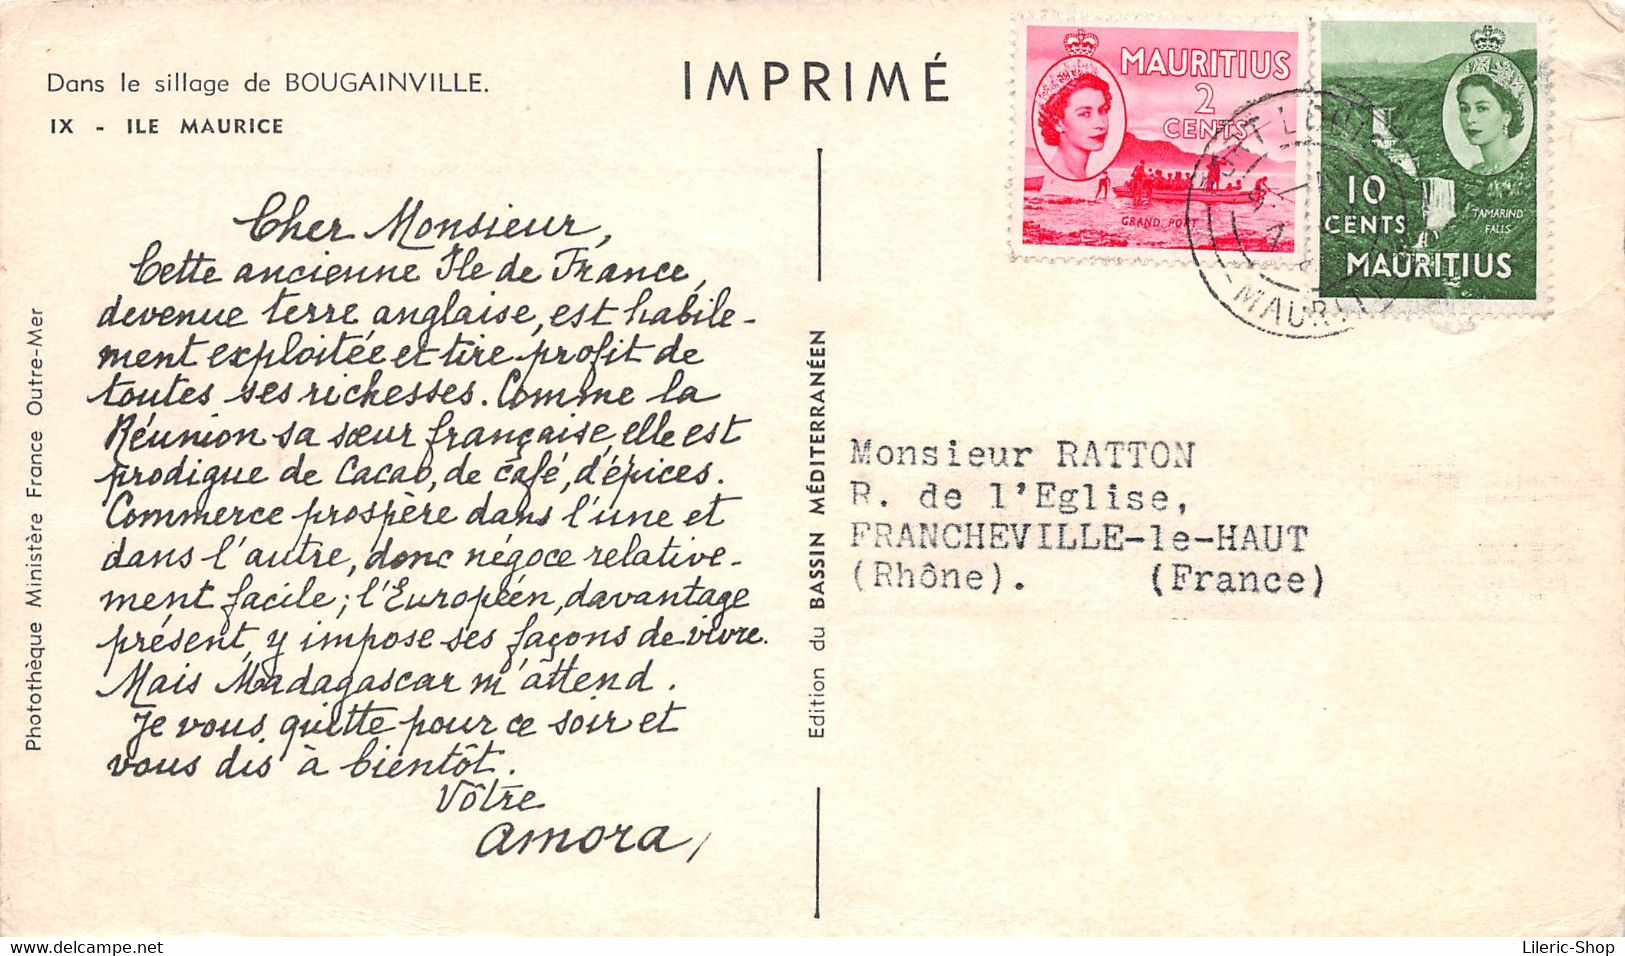 Dans le sillage de BOUGAINVILLE.
IX - ILE MAURICE
IMPRIMÉ
Cher Monsieur,
Cette ancienne Ile de France,
devenue terre anglaise, est habile-
ment exploitée et tire profit de
toutes ses richesses. Comme la
Réunion sa sœur française, elle est
prodigue de Cacao, de café, d'épices.
Commerce prospère dans l'une et
dans l'autre, donc négoce relative-
ment facile; l'Européen, davantage
présent, y impose ses façons de vivre.
Mais Madagascar m'attend.
Je vous quitte pour ce soir et
vous dis à bientôt.
Vôtre
amora,
Photothèque Ministère France Outre-Mer
Edition du BASSIN MÉDITERRANÉEN
MAURITIUS
2
CENTS
GRAND PORT
10
CENTS
TAMARIND
FALLS
MAURITIUS
PORT LOUIS
MAURITIUS
Monsieur RATTON
R. de l'Eglise,
FRANCHEVILLE-le-HAUT
(Rhône). (France)
Lileric-Shop